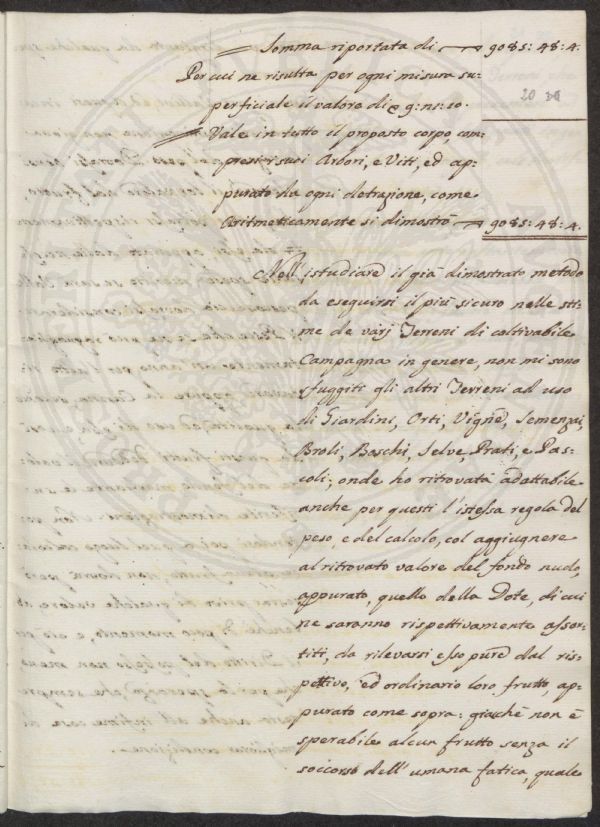 Somma riportata di — 9085: 48: 4.
Per cui ne risulta per ogni misura su:
perficiale il valore di 9: ns: 50.
20
Vale in tutto il proposto corpo, com:
presi i suoi Arbori, e Viti, ed ap:
purato da ogni detrazione, come
Aritmeticamente si dimostrò — 9085: 48: 4.
Nell'istudiare il già dimostrato metodo
da eseguirsi il più sicuro nelle sti:
me de varj Terreni di coltivabile
Campagna in genere, non mi sono
sfuggiti gli altri Terreni ad uso
di Giardini, Orti, Vigne, Semenzai,
Broli, Boschi, Selve, Prati, e Pas:
coli; onde ho ritrovata adattabile
anche per questi l'istessa regola del
peso, e del calcolo, col aggiugnere
al ritrovato valore del fondo nudo,
appurato, quello della Dote, di cui
ne saranno rispettivamente assor:
titi, da rilevarsi esso pure dal ris:
pettivo, ed ordinario loro frutto, ap:
purato come sopra: giachè non è
sperabile alcun frutto senza il
soccorso dell'umana fatica, quale